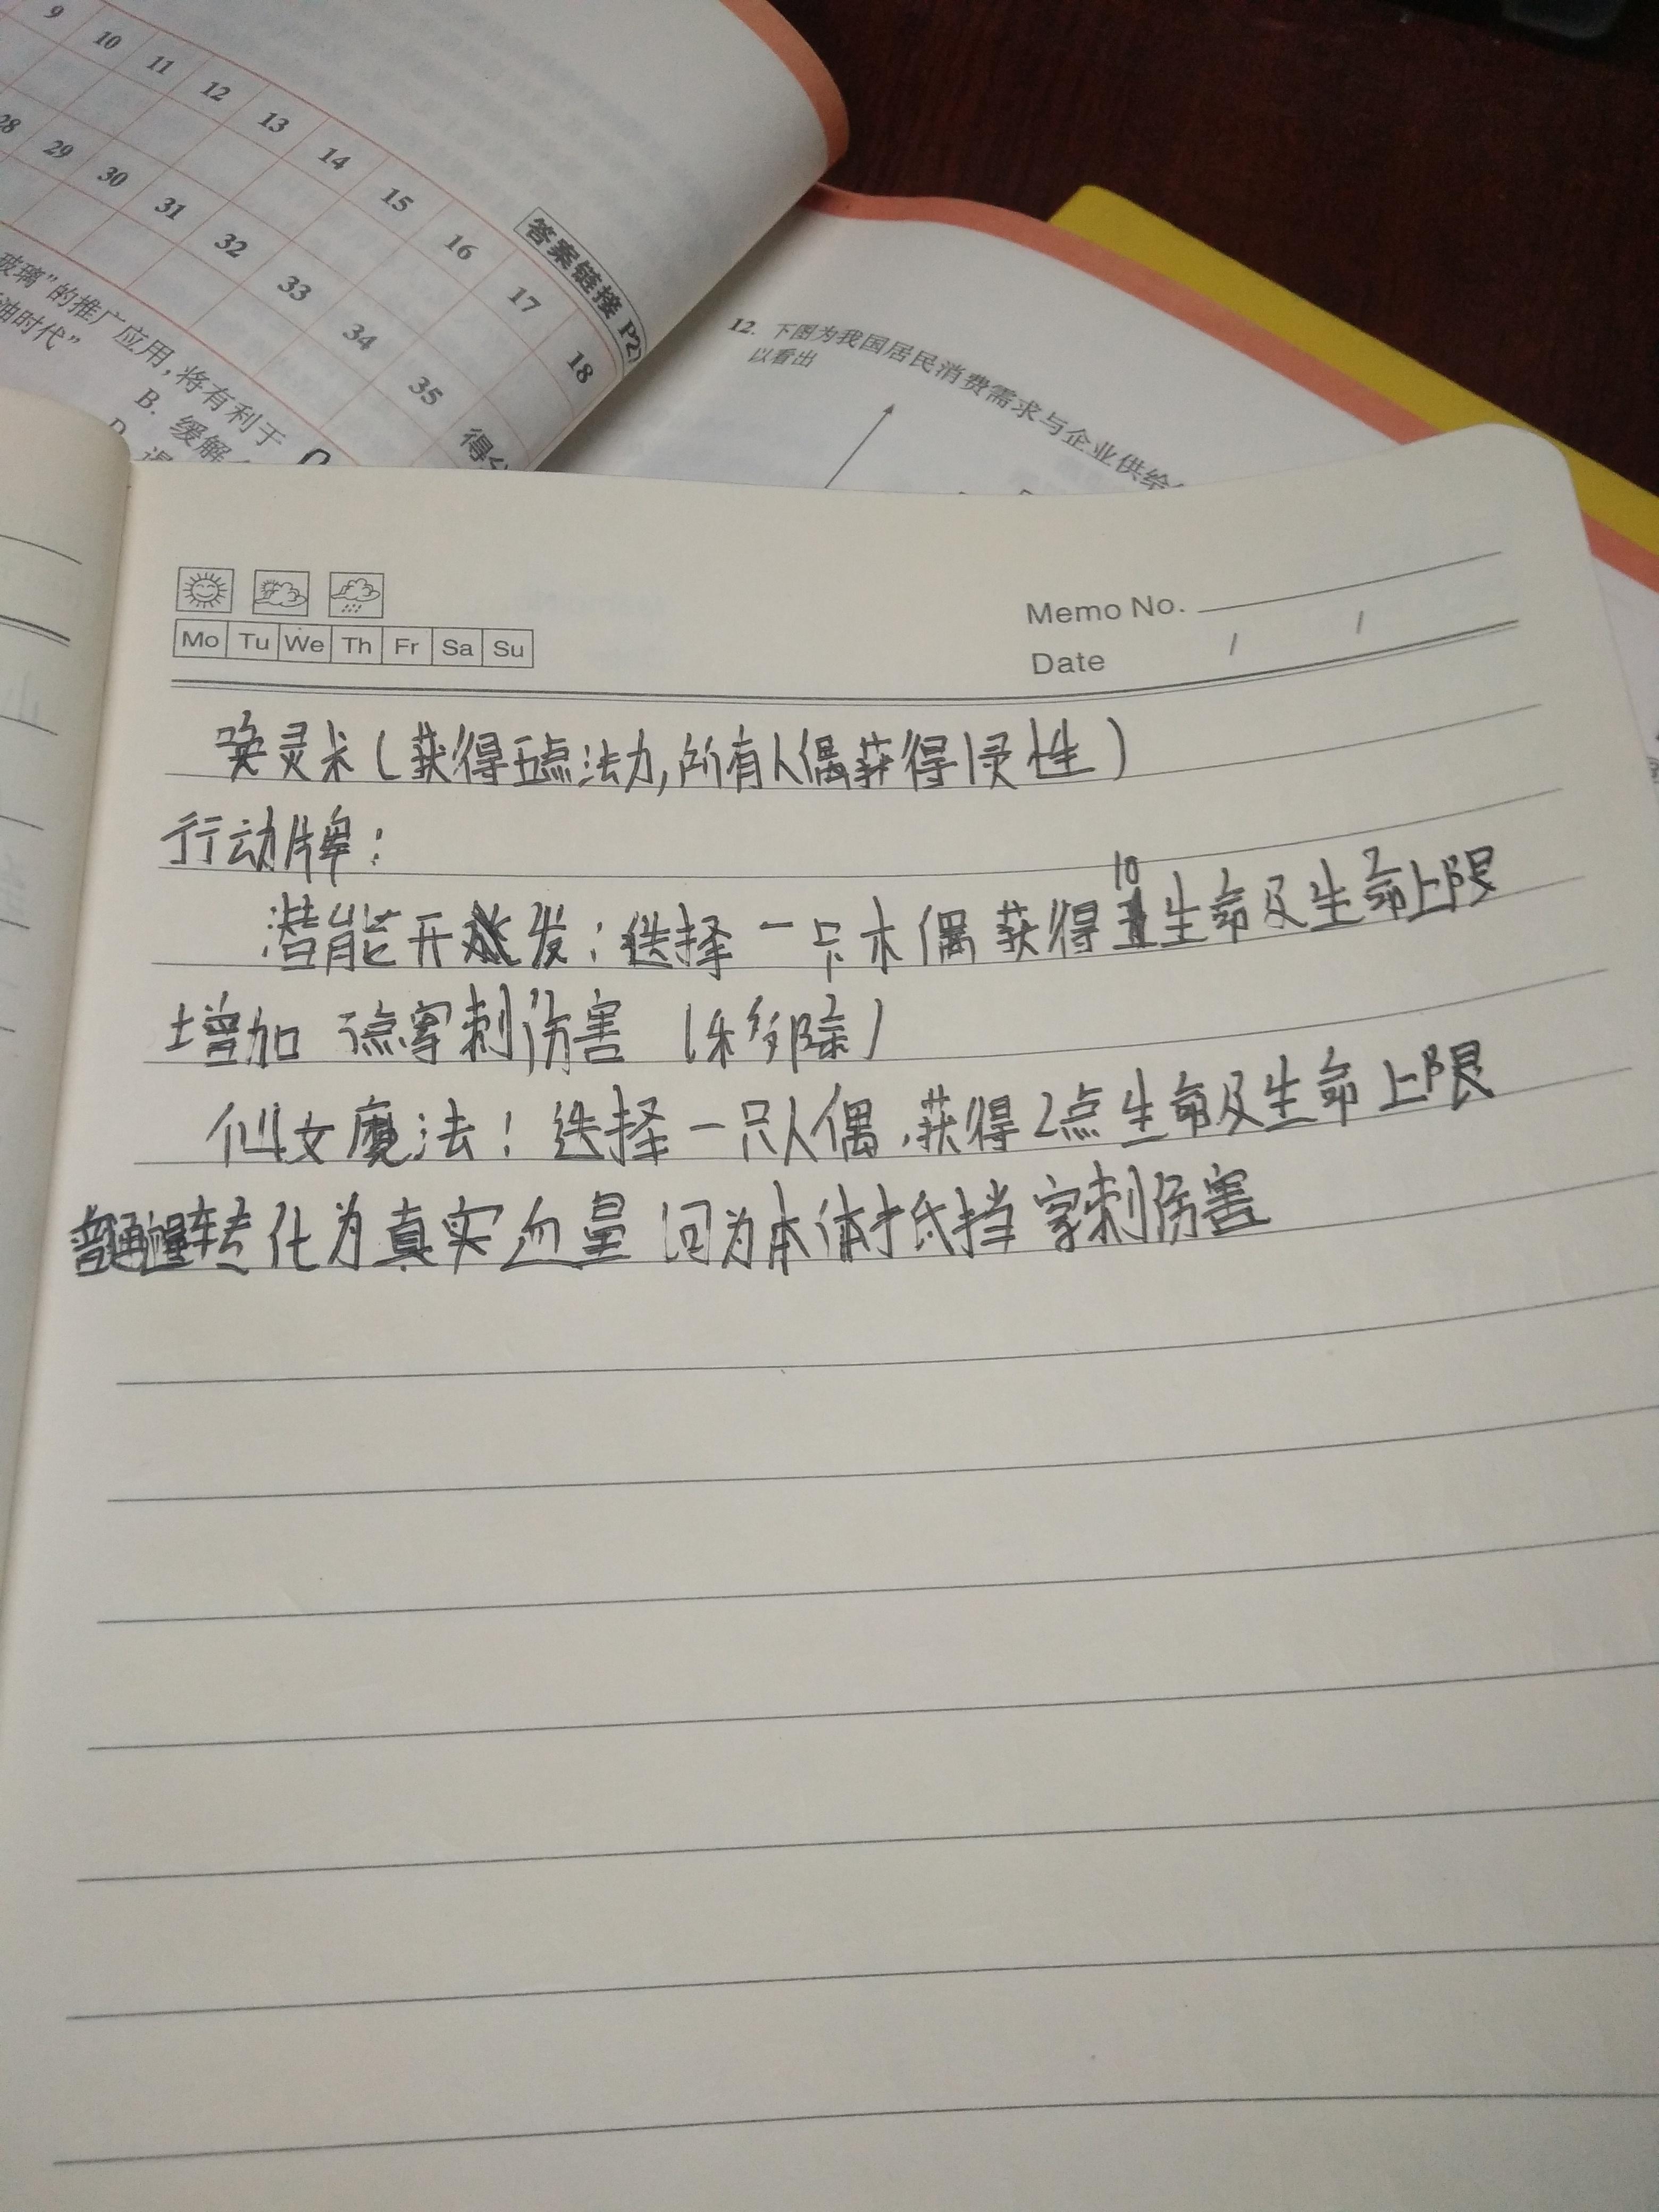 9 10 11 12 13 14 15 16 17 18
28 29 30 31 32 33 34 35 得分
答案链接 P2
玻璃”的推广应用,将有利于
油时代”
B. 缓解
12. 下图为我国居民消费需求与企业供给
以看出
Memo No.
Mo Tu We Th Fr Sa Su
Date / /
唤灵术(获得五点法力,所有人偶获得灵性)
行动牌:
潜能开发:选择一只木偶获得10生命及生命上限
增加 点穿刺伤害 (移除)
仙女魔法:选择一只人偶,获得2点生命及生命上限
转化为真实血量 可为本体抵挡穿刺伤害